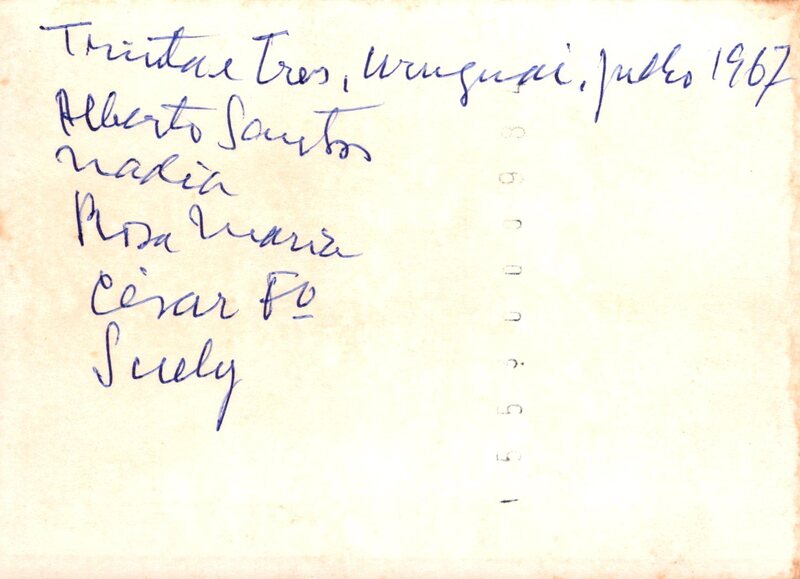 Trinta e Tres, Uruguai, julho 1967
Alberto Santos
Nadia
Rosa Maria
César Fº
Suely